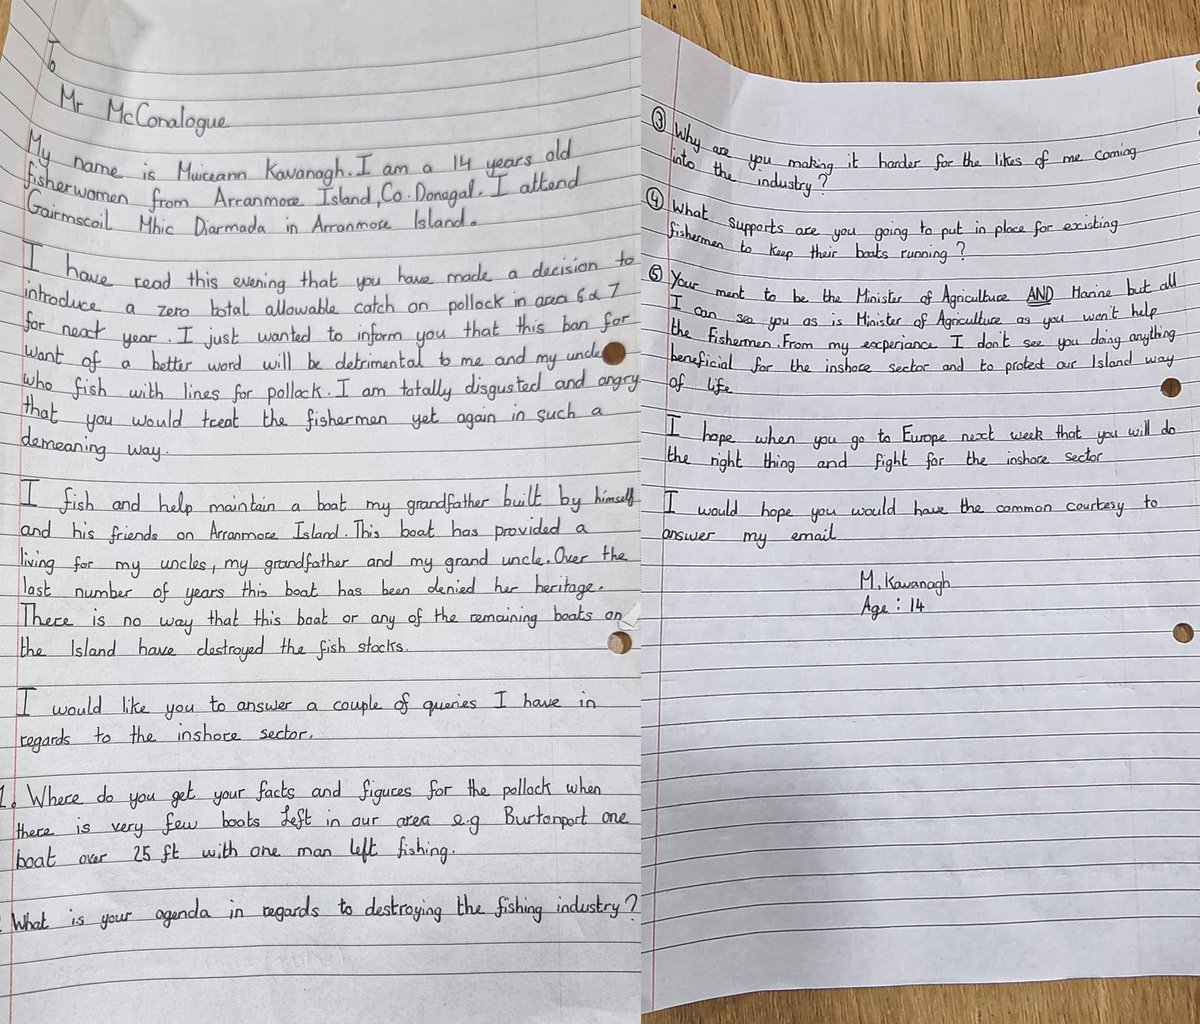 To
Mr McConalogue
My name is Muireann Kavanagh. I am a 14 years old
fisherwomen from Arranmore Island, Co. Donegal. I attend
Gairmscoil Mhic Diarmada in Arranmore Island.
I have read this evening that you have made a decision to
introduce a zero total allowable catch on pollock in area 6 & 7
for next year. I just wanted to inform you that this ban for
want of a better word will be detrimental to me and my uncle
who fish with lines for pollock. I am totally disgusted and angry
that you would treat the fishermen yet again in such a
demeaning way.
I fish and help maintain a boat my grandfather built by himself
and his friends on Arranmore Island. This boat has provided a
living for my uncles, my grandfather and my grand uncle. Over the
last number of years this boat has been denied her heritage.
There is no way that this boat or any of the remaining boats on
the Island have destroyed the fish stocks.
I would like you to answer a couple of queries I have in
regards to the inshore sector.
1. Where do you get your facts and figures for the pollock when
there is very few boats left in our area e.g Burtonport one
boat over 25 ft with one man left fishing.
What is your agenda in regards to destroying the fishing industry?
3 Why are you making it harder for the likes of me coming
into the industry?
4 What supports are you going to put in place for existing
fishermen to keep their boats running?
5 Your ment to be the Minister of Agriculture AND Marine but all
I can see you as is Minister of Agriculture as you won't help
the Fishermen. From my experiance I don't see you doing anything
beneficial for the inshore sector and to protect our Island way
of life
I hope when you go to Europe next week that you will do
the right thing and fight for the inshore sector
I would hope you would have the common courtesy to
answer my email
M. Kavanagh
Age : 14